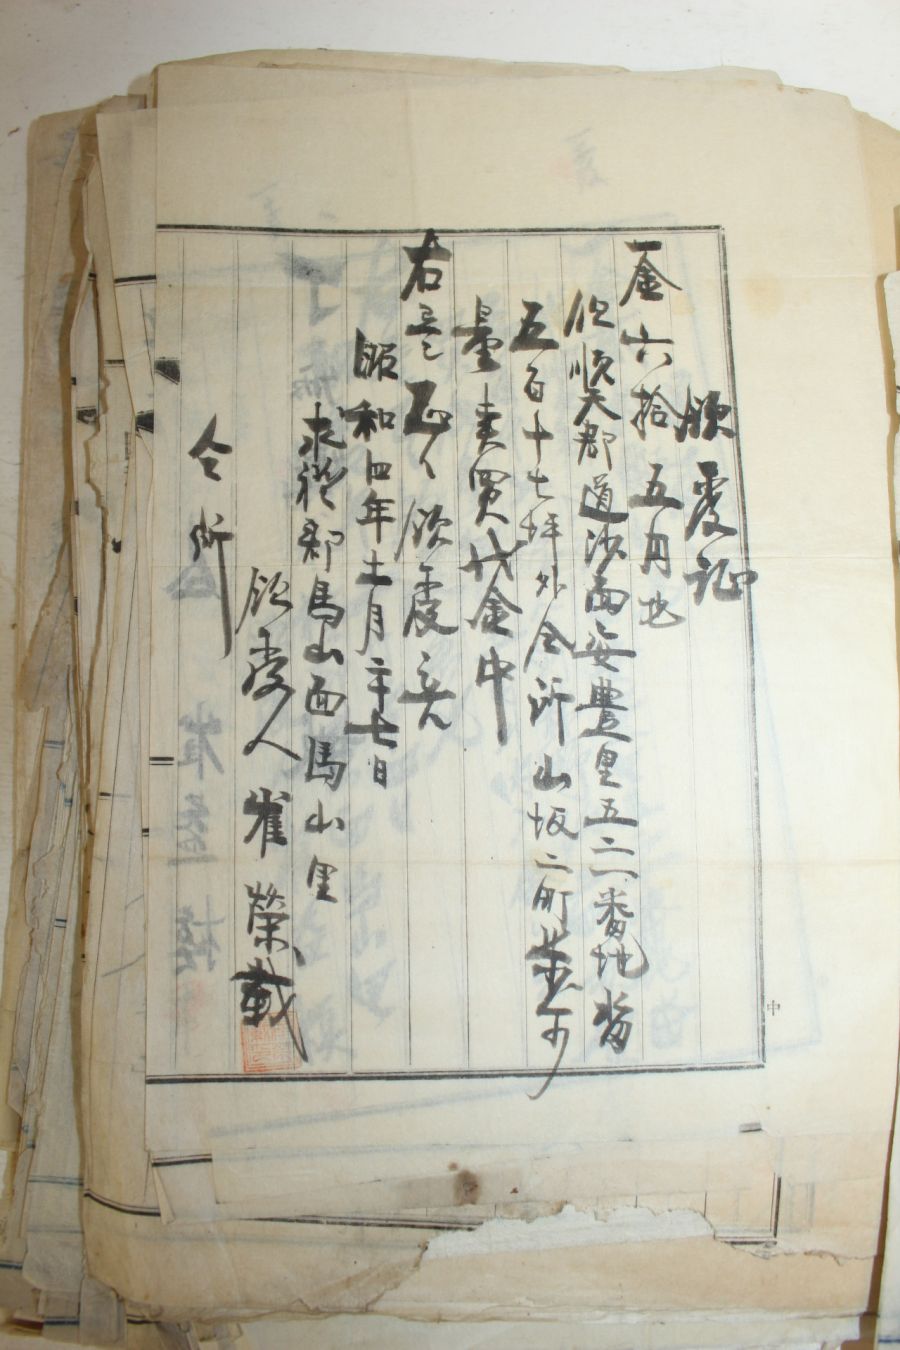 領受証
一金六拾五円也
但順天郡道沙面安豊里五二一番地畓
五百十七坪外仝所山坂二町
量売買代金中
右是正に領受
昭和四年十一月二十七日
求禮郡馬山面馬山里
領受人 崔榮載
仝所
中